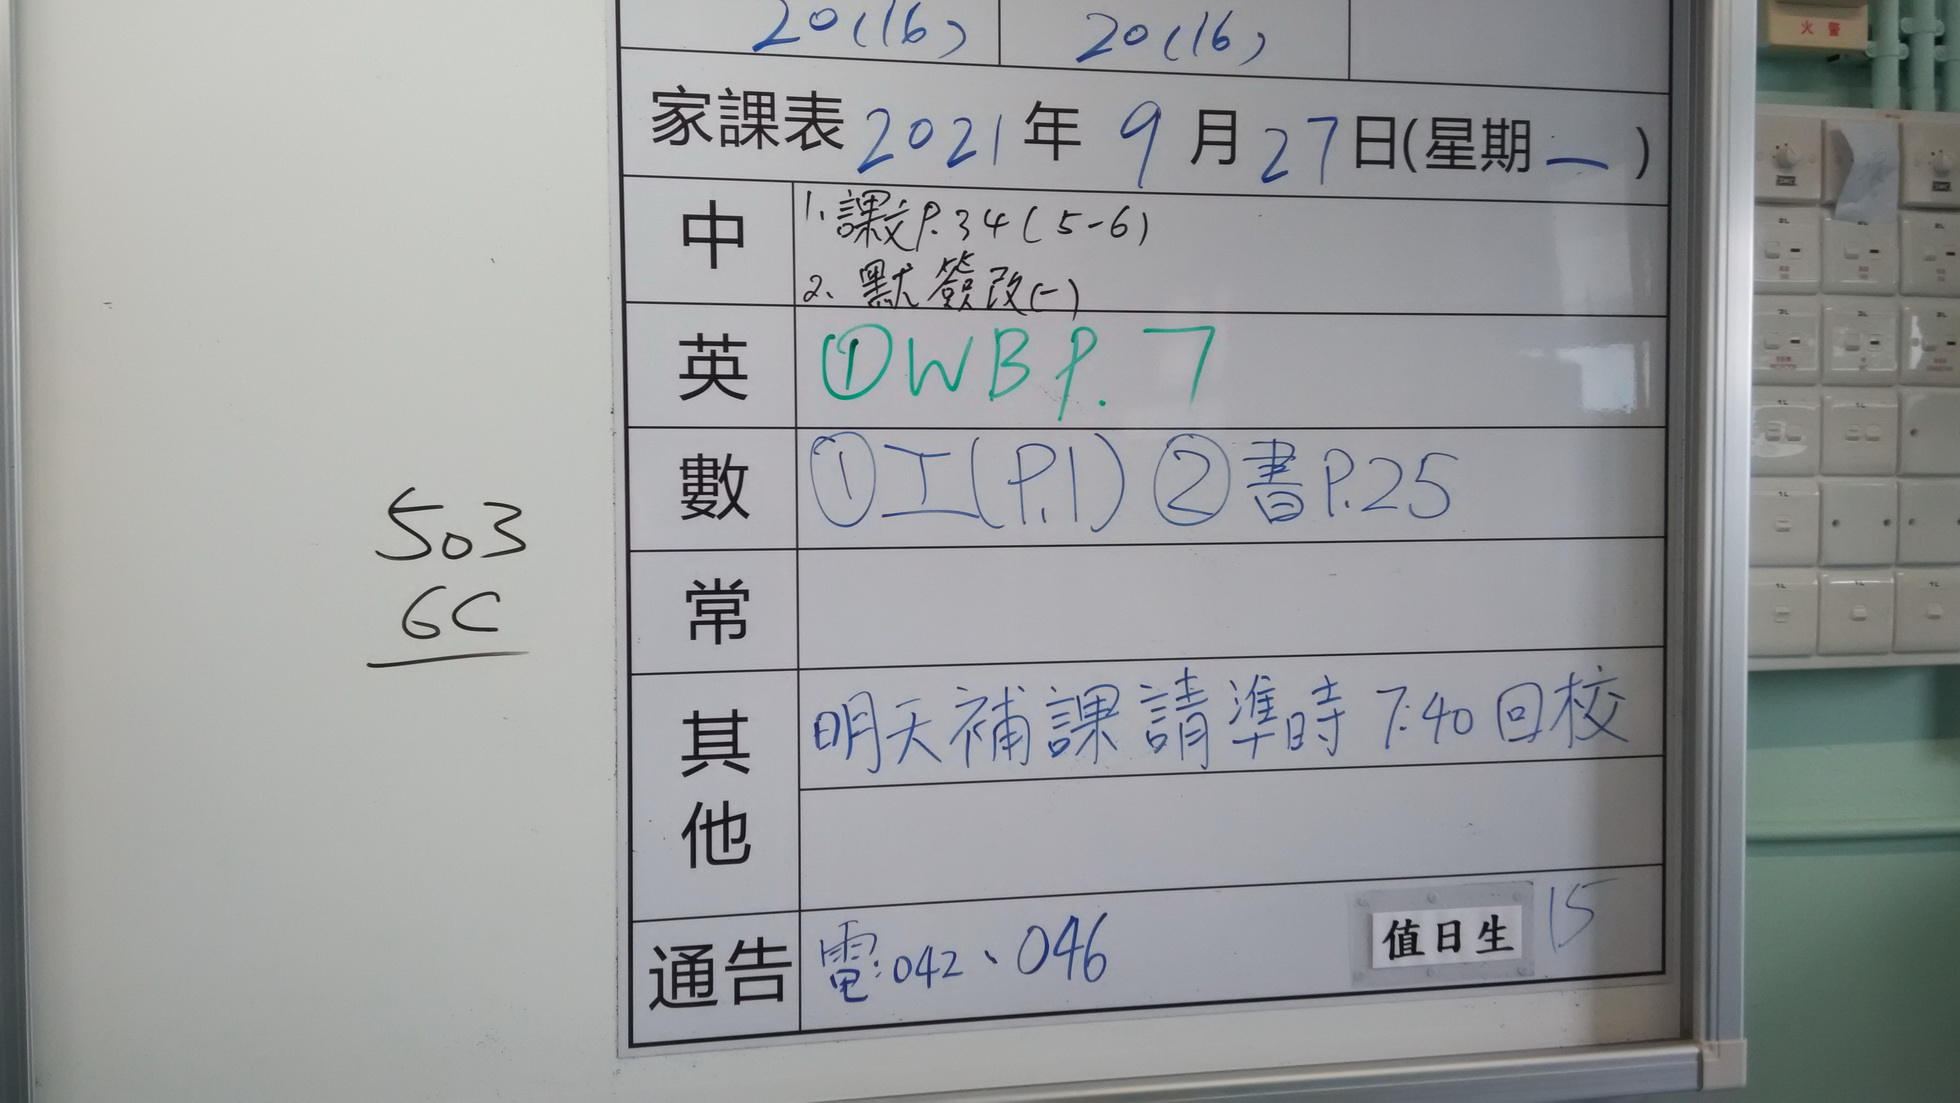 20(16) 20(16)
家課表 2021年 9月27日(星期一)
中 1. 課文P.34(5-6)
2. 默簽改(一)
英 ①WB P.7
數 ①工(P.1) ②書P.25
常
503
6C
其他 明天補課請準時7:40回校
通告 電:042、046 值日生 15
火警